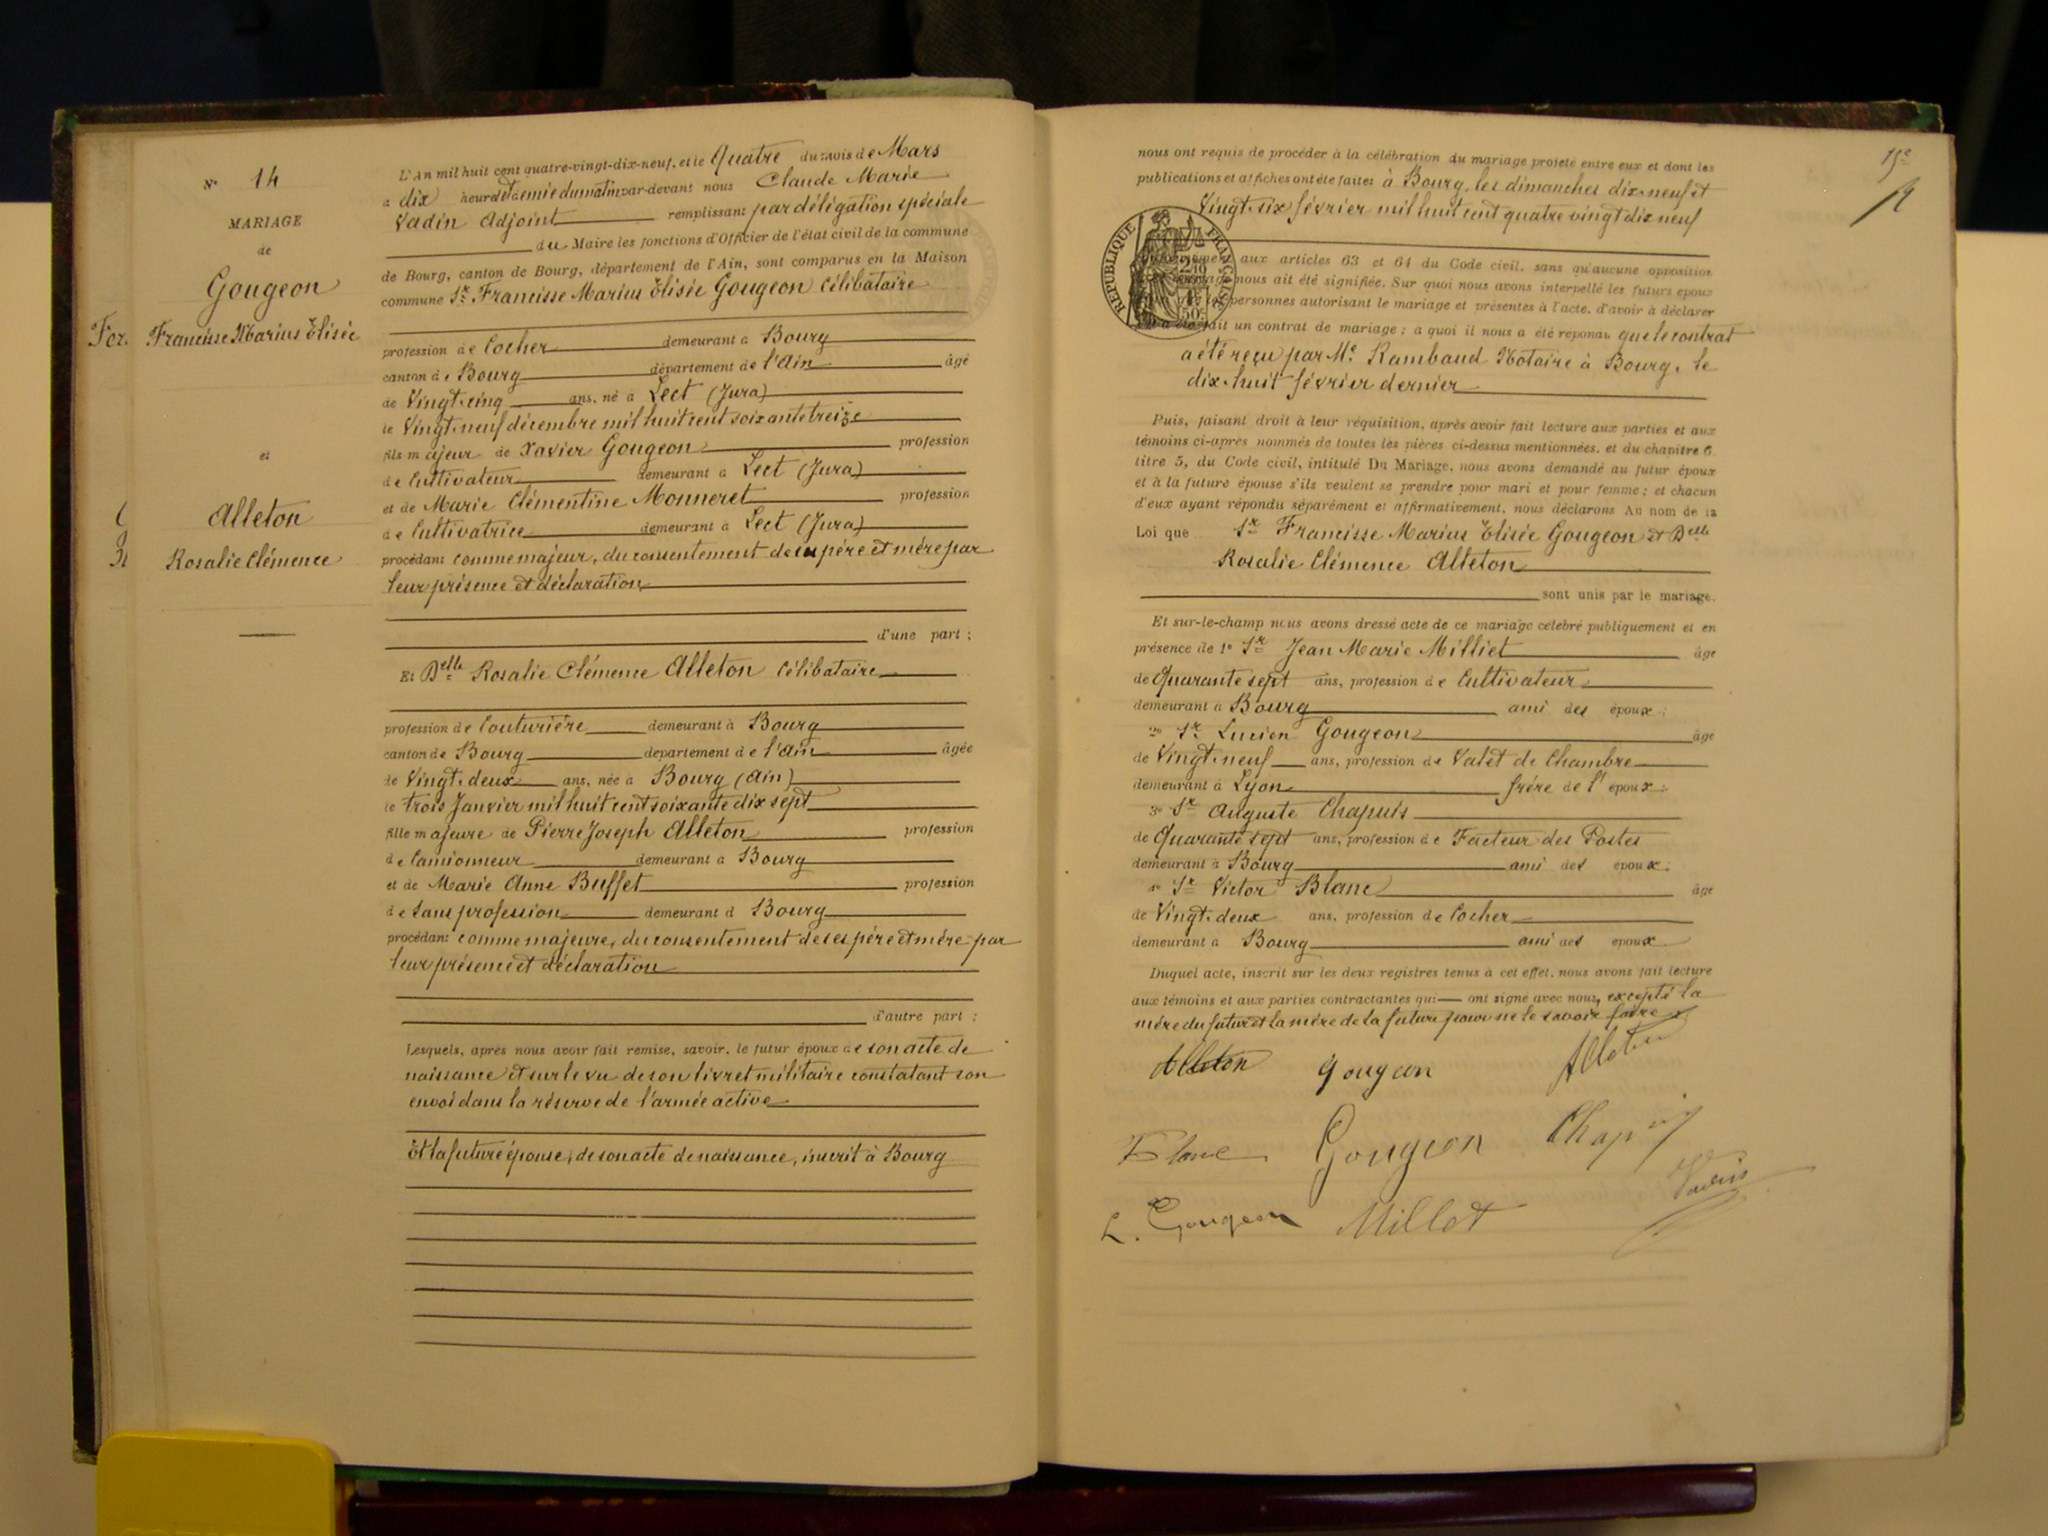 N° 14
MARIAGE
de
Gougeon
Francisse Marius Elisée
et
Alleton
Rosalie Clémence
Fer.
L'An mil huit cent quatre-vingt-dix-neuf, et le Quatre du mois de Mars
à dix heures et demie du matin par-devant nous Claude Marie
Vadin Adjoint remplissant par délégation spéciale
du Maire les fonctions d'Officier de l'état civil de la commune
de Bourg, canton de Bourg, département de l'Ain, sont comparus en la Maison
commune Sr Francisse Marius Elisée Gougeon Célibataire
profession de Cocher demeurant à Bourg
canton de Bourg département de l'Ain âgé
de Vingt-cinq ans, né à Lect (Jura)
le Vingt-neuf décembre mil huit cent soixante treize
fils majeur de Xavier Gougeon profession
de Cultivateur demeurant à Lect (Jura)
et de Marie Clémentine Monneret profession
de Cultivatrice demeurant à Lect (Jura)
procédant comme majeur, du consentement de ses père et mère par
leur présence et déclaration
d'une part ;
Et Delle Rosalie Clémence Alleton Célibataire
profession de Couturière demeurant à Bourg
canton de Bourg département de l'Ain âgée
de Vingt-deux ans, née à Bourg (Ain)
le trois Janvier mil huit cent soixante dix sept
fille majeure de Pierre Joseph Alleton profession
de Camionneur demeurant à Bourg
et de Marie Anne Buffet profession
de Sans profession demeurant à Bourg
procédant comme majeure, du consentement de ses père et mère par
leur présence et déclaration
d'autre part ;
Lesquels, après nous avoir fait remise, savoir, le futur époux de son acte de
naissance et sur le vu de son livret militaire constatant son
envoi dans la réserve de l'armée active
Et la future épouse, de son acte de naissance, inscrit à Bourg
15e
nous ont requis de procéder à la célébration du mariage projeté entre eux et dont les
publications et affiches ont été faites à Bourg, les dimanches dix-neuf et
Vingt-six février mil huit cent quatre vingt dix neuf
RÉPUBLIQUE FRANÇAISE
aux articles 63 et 64 du Code civil, sans qu'aucune opposition
nous ait été signifiée. Sur quoi nous avons interpellé les futurs époux
personnes autorisant le mariage et présentes à l'acte, d'avoir à déclarer
s'il a été fait un contrat de mariage ; à quoi il nous a été répondu que le contrat
a été reçu par Me Rambaud Notaire à Bourg, le
dix-huit février dernier
Puis, faisant droit à leur réquisition, après avoir fait lecture aux parties et aux
témoins ci-après nommés de toutes les pièces ci-dessus mentionnées, et du chapitre 6
titre 5, du Code civil, intitulé Du Mariage, nous avons demandé au futur époux
et à la future épouse s'ils veulent se prendre pour mari et pour femme ; et chacun
d'eux ayant répondu séparément et affirmativement, nous déclarons Au nom de la
Loi que Sr Francisse Marius Elisée Gougeon et Delle
Rosalie Clémence Alleton
sont unis par le mariage.
Et sur-le-champ nous avons dressé acte de ce mariage célébré publiquement et en
présence de 1° Sr Jean Marie Milliet âgé
de Quarante sept ans, profession de Cultivateur
demeurant à Bourg ami des époux ;
2° Sr Lucien Gougeon âgé
de Vingt-neuf ans, profession de Valet de Chambre
demeurant à Lyon frère de l'époux ;
3° Sr Auguste Chapuis
de Quarante sept ans, profession de Facteur des Postes
demeurant à Bourg ami des époux ;
4° Sr Victor Blanc âgé
de Vingt-deux ans, profession de Cocher
demeurant à Bourg ami des époux
Duquel acte, inscrit sur les deux registres tenus à cet effet, nous avons fait lecture
aux témoins et aux parties contractantes qui ont signé avec nous, excepté la
mère du futur et la mère de la future pour ne le savoir faire
Alleton Gougeon Alleton
Blanc Gougeon Chapuis
L. Gougeon Millet Vadin